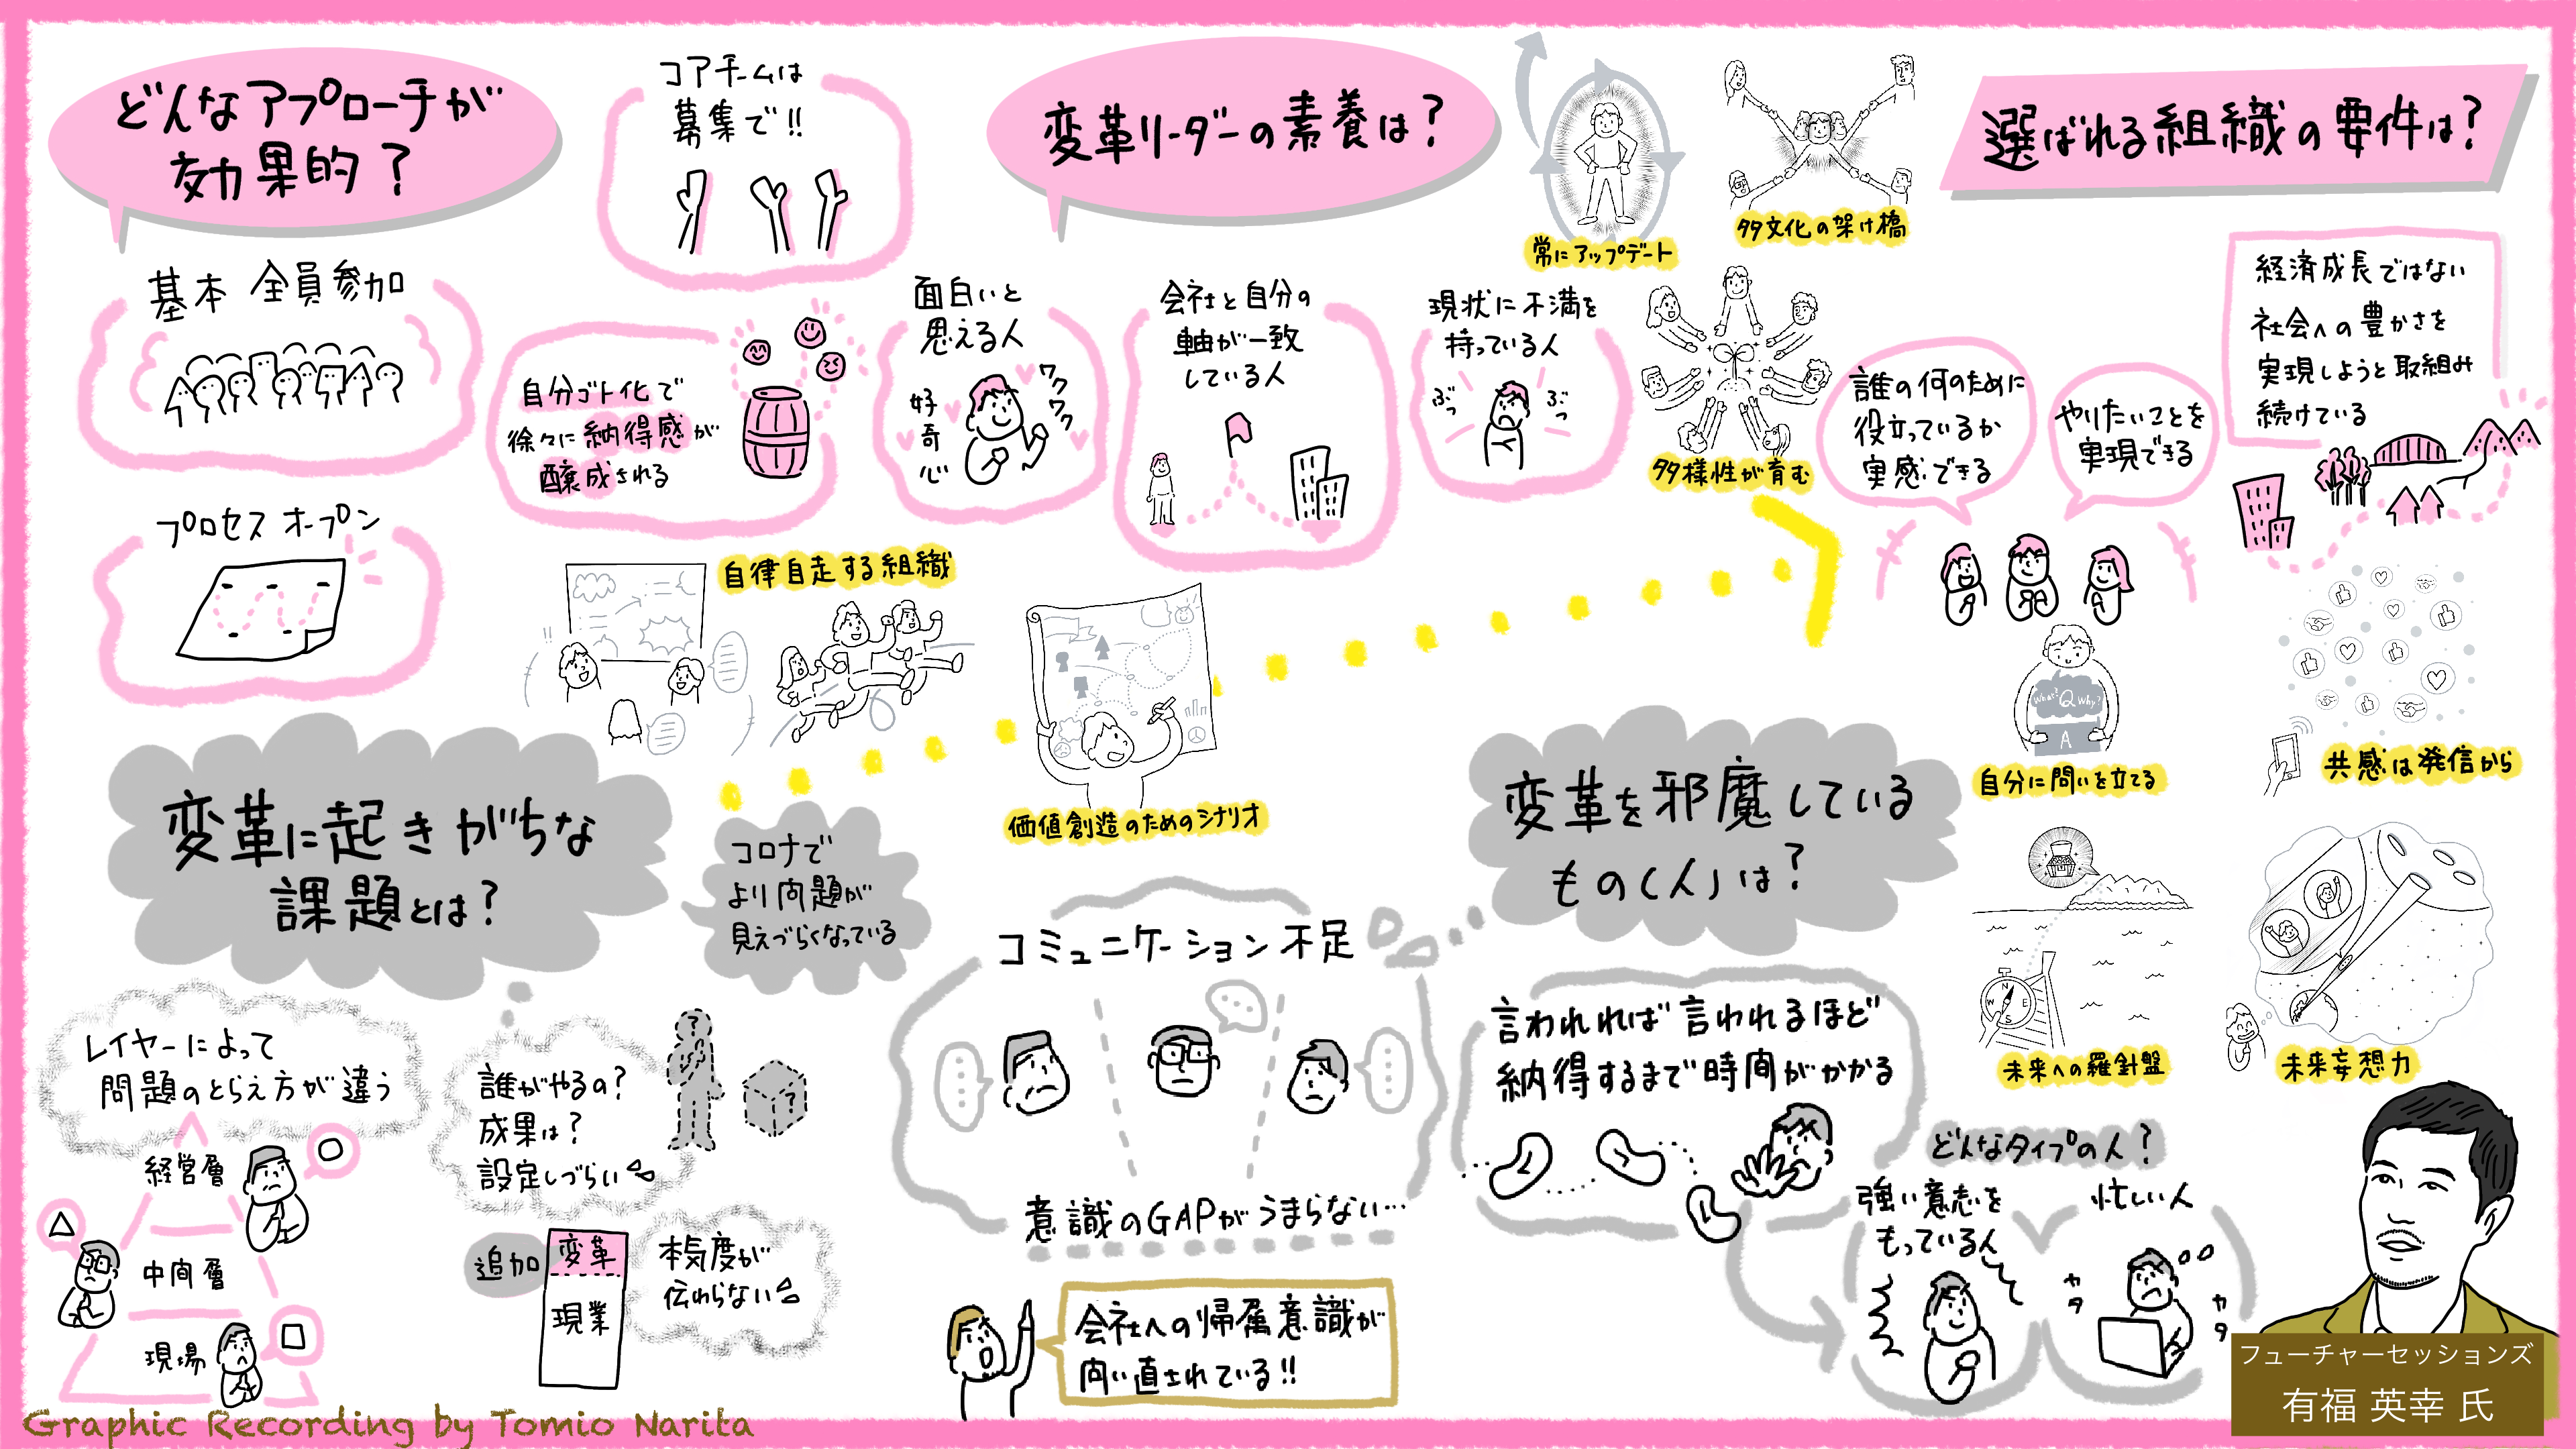 どんなアプローチが
効果的？
基本 全員参加
プロセスオープン
コアチームは
募集で!!
自分ゴト化で
徐々に納得感が
醸成される
変革リーダーの素養は？
面白いと
思える人
好奇心
ワクワク
会社と自分の
軸が一致
している人
現状に不満を
持っている人
ぶつ
ぶつ
常にアップデート
多文化の架け橋
多様性が育む
選ばれる組織の要件は？
経済成長ではない
社会への豊かさを
実現しようと取組み
続けている
誰の何のために
役立っているか
実感できる
やりたいことを
実現できる
自律自走する組織
価値創造のためのシナリオ
What? Q Why?
A
自分に問いを立てる
共感は発信から
N
W E
S
未来への羅針盤
未来妄想力
変革に起きがちな
課題とは？
コロナで
より問題が
見えづらくなっている
レイヤーによって
問題のとらえ方が違う
経営層
中間層
現場
誰がやるの？
成果は？
設定しづらい
?
?
追加
変革
現業
本気度が
伝わらない
変革を邪魔している
もの(人)は？
コミュニケーション不足
意識のGAPがうまらない…
会社への帰属意識が
問い直されている!!
言われれば言われるほど
納得するまで時間がかかる
どんなタイプの人？
強い意志を
もっている人
忙しい人
カタ
カタ
フューチャーセッションズ
有福 英幸 氏
Graphic Recording by Tomio Narita